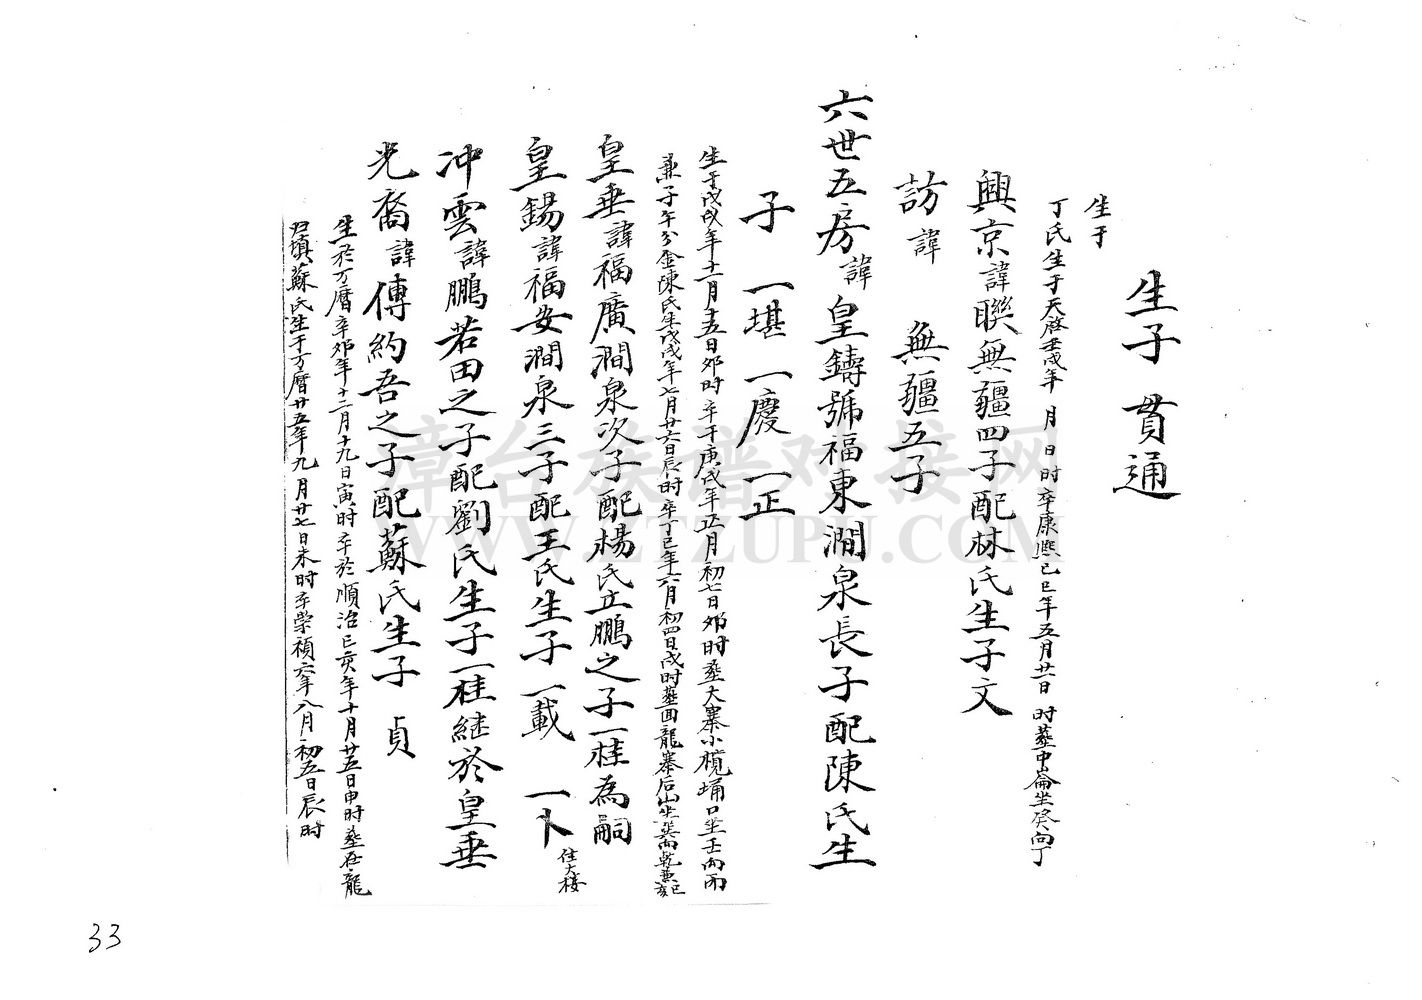 生子 貫通
生于
丁氏生于天啓壬戌年 月 日 时卒康熙己巳年五月廿六日 时葬中崙坐癸向丁
興京諱聯無疆四子配林氏生子文
訪諱 無疆五子
六世五房諱皇鑄號福東澗泉長子配陳氏生
子 一堪 一慶 一正
生于戊戌年十二月十五日卯时卒于庚戌年五月初七日卯时葬大寨小欖埔口坐壬向丙
兼子午分金陳氏生戊戌年七月廿六日辰时卒丁巳年六月初四日戌时葬回龍寨后山坐巽向乾兼巳亥
皇垂諱福廣澗泉次子配楊氏立鵬之子一桂為嗣
皇錫諱福安澗泉三子配王氏生子一載 一卞住大楼
冲雲諱鵬若田之子配劉氏生子一桂継於皇垂
光裔諱傅約吾之子配蘇氏生子 貞
生於万曆辛卯年十二月十九日寅时卒於順治己亥年十月廿五日申时葬在龍
蘇氏生于万曆廿五年九月廿七日未时卒崇禎六年八月初五日辰时
33
漳台族谱对接网
WWW.ZTZUPU.COM